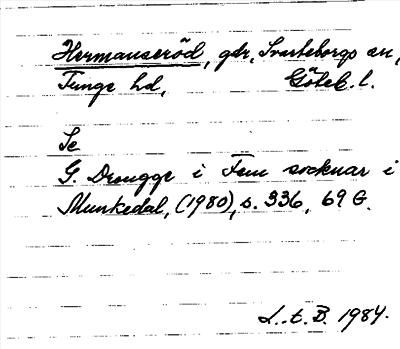 Hermanseröd, gdr, Svarteborgs sn,
Tunge hd, Göteb. l.
Se
G. Drougge i Fem socknar i
Munkedal, (1980), s. 336, 69 G.
L.t.B. 1984.